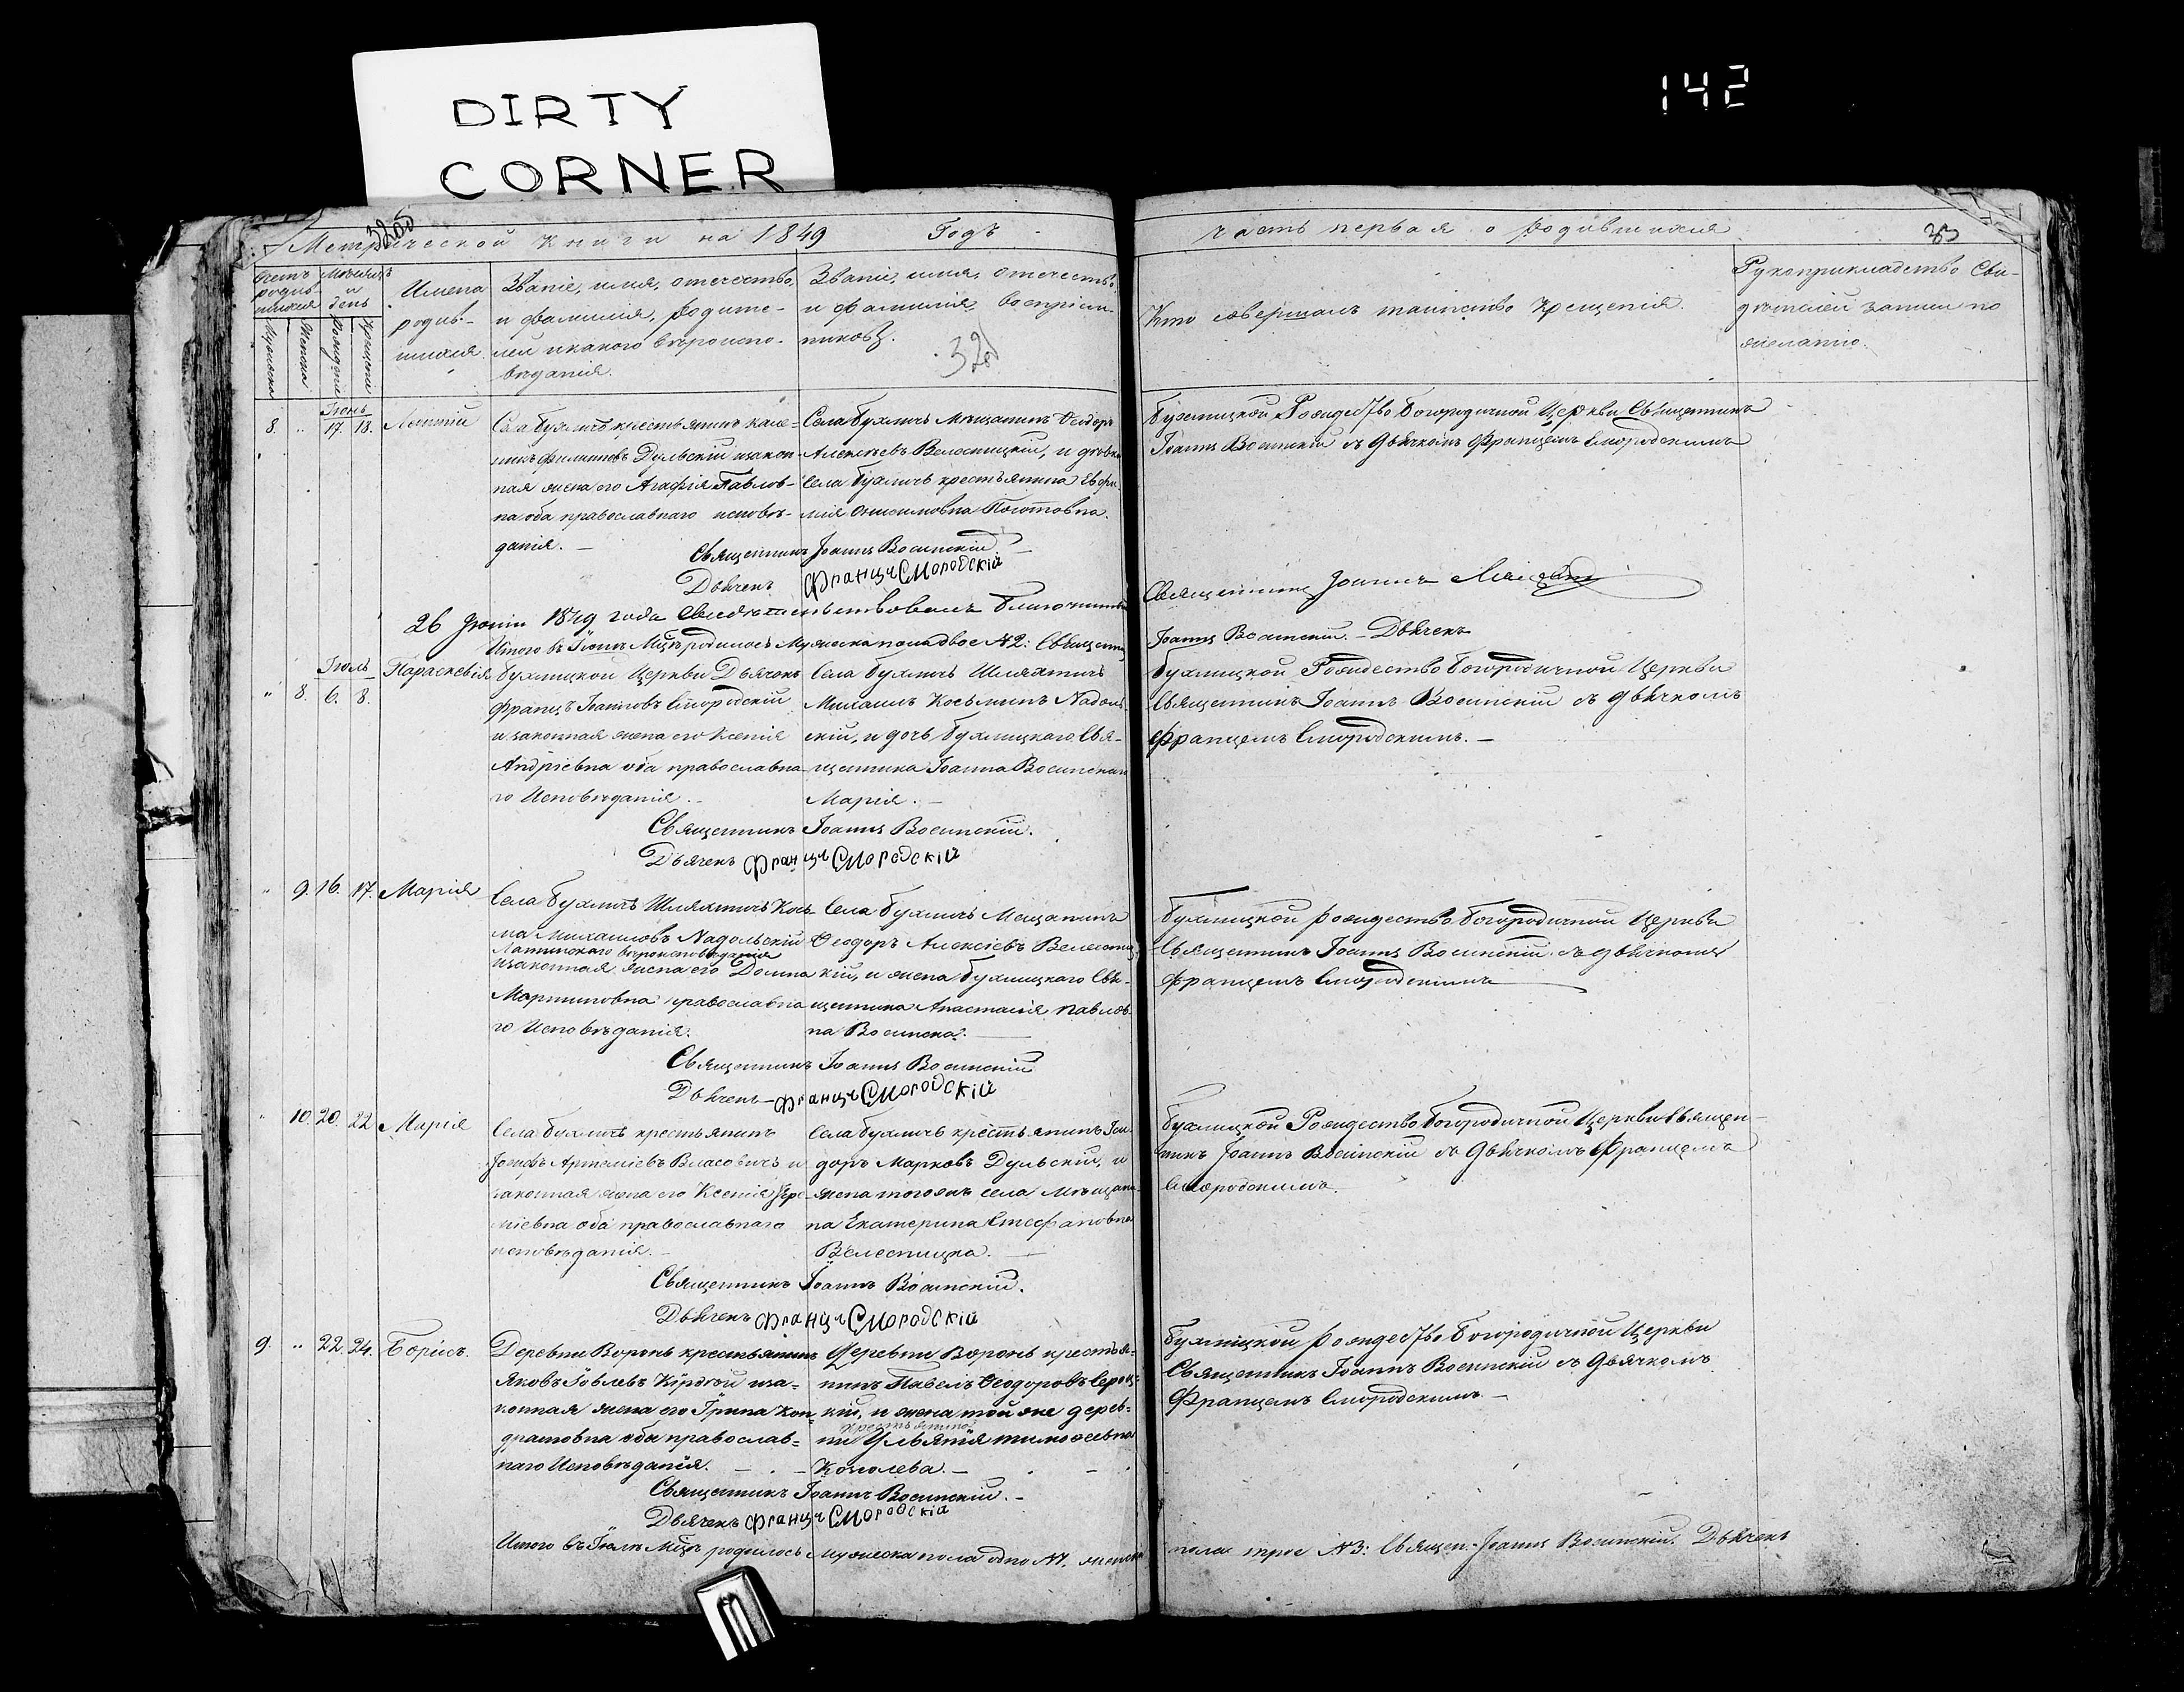 DIRTY
CORNER
142
Метрической книги на 1849 Годъ
часть первая о родившихся
Счетъ родив-шихся
Мужеска
Женска
Мѣсяцъ и день
Рожденія
Крещенія
Имена
родив-
шихся.
Званіе, имя, отечество,
и фамилія, родите-
лей и какого вѣроиспо-
вѣданія.
Званіе, имя, отечество,
и фамилія воспріем-
никовъ.
Кто совершалъ таинство крещенія.
Рукоприкладство Сви-
дѣтелей записи по
желанію.
8. Іюнь 17. 18.
Села Бухличъ крестьянинъ
Филиповъ Дульскій и закон-
ная жена его Агафія Павлов-
на оба православнаго исповѣ-
данія.
Села Бухличъ Мѣщанинъ Ѳеодоръ
Алексѣевъ Велесницкій, и
Села Бухличъ крестьянина
Онисимовна
Бухлицкой Рождество Богородичной Церкви Священникъ
Іоаннъ Воеинскій съ дьячкомъ Францемъ Смородскимъ
Священникъ Іоаннъ Воеинскій
Дьячекъ Францъ Смородскій
26 Іюня 1849 года свидѣтельствовалъ Благочинный
Священникъ Іоаннъ
Итого въ Іюнѣ Мцѣ родилось Мужеска пола двое №2: Священ
Іоаннъ Воеинскій. Дьячекъ
Іюль
8. 6. 8. Параскевія
Бухлицкой Церкви Дьячокъ
Францъ Іоанновъ Смородскій
и законная жена его Ксенія
Андріевна оба православна-
го Исповѣданія.
Села Бухличъ Шляхтичъ
Михаилъ Косьминъ Надоль-
скій, и дочь Бухлицкаго Свя-
щенника Іоанна Воеинскаго
Марія.
Бухлицкой Рождество Богородичной Церкви
Священникъ Іоаннъ Воеинскій съ дьячкомъ
Францемъ Смородскимъ.
Священникъ Іоаннъ Воеинскій.
Дьячекъ Францъ Смородскій
9. 16. 17. Марія
Села Бухличъ Шляхтичъ Кось-
ма Михаиловъ Надольскій
Латинскаго вѣроисповѣданія
и законная жена его Домна
Мартиновна православна-
го Исповѣданія.
Села Бухличъ Мещанинъ
Ѳеодоръ Алексіевъ Велесниц-
кій, и жена Бухлицкаго Свя-
щенника Анастасія Павлов-
на Воеинска.
Бухлицкой Рождество Богородичной Церкви
Священникъ Іоаннъ Воеинскій съ дьячкомъ
Францемъ Смородскимъ
Священникъ Іоаннъ Воеинскій
Дьячекъ Францъ Смородскій
10. 20. 22 Марія
Села Бухличъ крестьянинъ
Іосифъ Артеміевъ Власовичъ и
законная жена его Ксенія Іере-
міевна оба православнаго
исповѣданія.
Села Бухличъ крестьянинъ Іси-
доръ Марковъ Дульскій, и
жена тогожъ села мѣщани-
на Екатерина Стефановна
Велесницка.
Бухлицкой Рождество Богородичной Церкви Священ-
никъ Іоаннъ Воеинскій съ дьячкомъ Францемъ
Смородскимъ.
Священникъ Іоаннъ Воеинскій.
Дьячекъ Францъ Смородскій
9. 22 24. Борисъ.
Деревни Воронь крестьянинъ
Яковъ Іовлевъ и за-
конная жена его Ірина Кон-
дратовна оба православ-
наго Исповѣданія.
Деревни Воронь крестья-
нинъ Павелъ Ѳеодоровъ
кій, и жена той же дерев-
ни крестьянина Ульянія Тимоѳеевна
Королева.
Бухлицкой Рождество Богородичной Церкви
Священникъ Іоаннъ Воеинскій съ дьячкомъ
Францемъ Смородскимъ.
Священникъ Іоаннъ Воеинскій.
Дьячекъ Францъ Смородскій
Итого въ Іюлѣ Мцѣ родилось мужеска пола одно №1. женска
пола трое №3: Священ. Іоаннъ Воеинскій. Дьячекъ